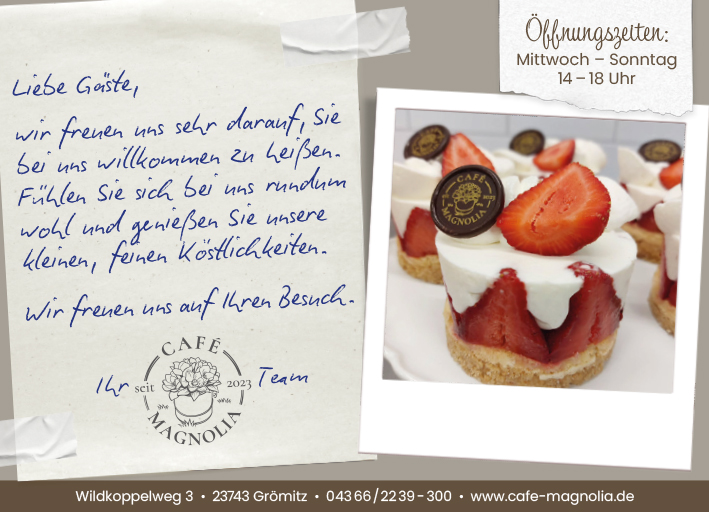 Liebe Gäste,
wir freuen uns sehr darauf, Sie
bei uns willkommen zu heißen.
Fühlen Sie sich bei uns rundum
wohl und genießen Sie unsere
kleinen, feinen Köstlichkeiten.
Wir freuen uns auf Ihren Besuch.
Ihr
CAFÉ
seit 2023
MAGNOLIA
Team
Öffnungszeiten:
Mittwoch – Sonntag
14 – 18 Uhr
CAFÉ
MAGNOLIA
Wildkoppelweg 3 • 23743 Grömitz • 043 66 / 22 39 - 300 • www.cafe-magnolia.de